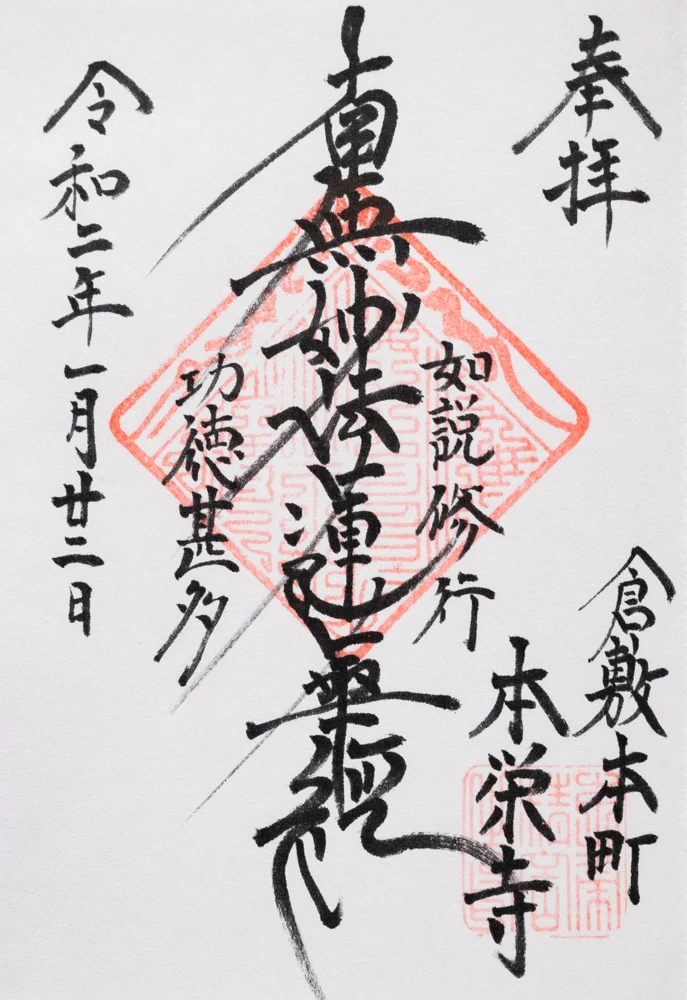 奉拝
倉敷本町
本栄寺
如説修行
南無妙法蓮華経
功徳甚多
令和二年一月廿二日